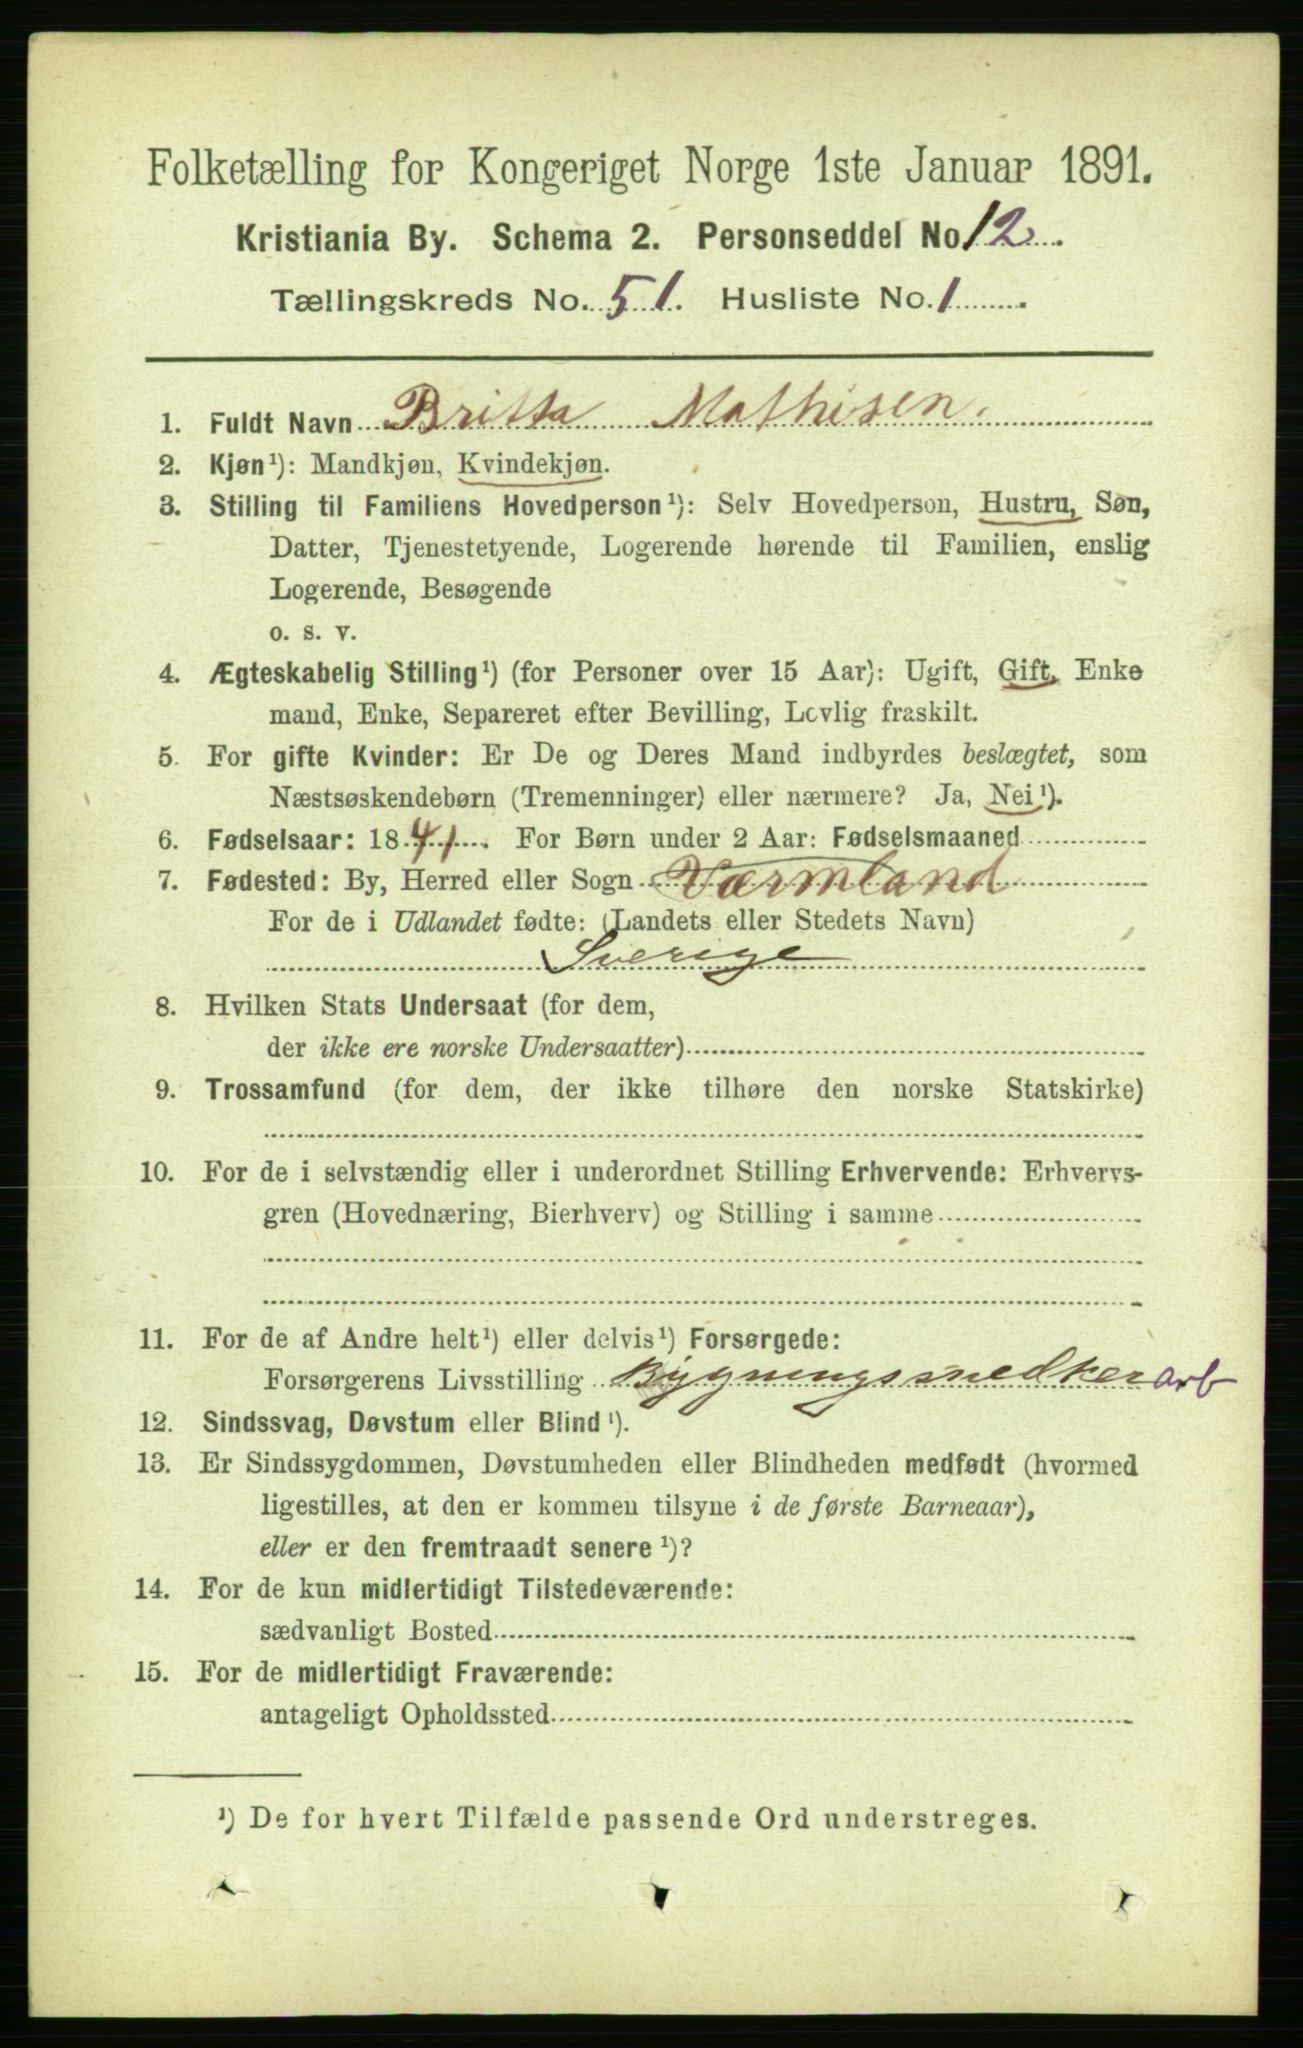 Folketælling for Kongeriget Norge 1ste Januar 1891.
Kristiania By. Schema 2. Personseddel No 12
Tællingskreds No. 51. Husliste No. 1
1. Fuldt Navn Britta Mathisen.
2. Kjøn¹): Mandkjøn, Kvindekjøn.
3. Stilling til Familiens Hovedperson¹): Selv Hovedperson, Hustru, Søn,
Datter, Tjenestetyende, Logerende hørende til Familien, enslig
Logerende, Besøgende
o. s. v.
4. Ægteskabelig Stilling¹) (for Personer over 15 Aar): Ugift, Gift, Enke
mand, Enke, Separeret efter Bevilling, Lovlig fraskilt.
5. For gifte Kvinder: Er De og Deres Mand indbyrdes beslægtet, som
Næstsøskendebørn (Tremenninger) eller nærmere? Ja, Nei¹).
6. Fødselsaar: 1841. For Børn under 2 Aar: Fødselsmaaned
7. Fødested: By, Herred eller Sogn Værmland
For de i Udlandet fødte: (Landets eller Stedets Navn)
Sverige
8. Hvilken Stats Undersaat (for dem,
der ikke ere norske Undersaatter)
9. Trossamfund (for dem, der ikke tilhøre den norske Statskirke)
10. For de i selvstændig eller i underordnet Stilling Erhvervende: Erhvervs-
gren (Hovednæring, Bierhverv) og Stilling i samme
11. For de af Andre helt¹) eller delvis¹) Forsørgede:
Forsørgerens Livsstilling Bygningssnedker arb
12. Sindssvag, Døvstum eller Blind¹).
13. Er Sindssygdommen, Døvstumheden eller Blindheden medfødt (hvormed
ligestilles, at den er kommen tilsyne i de første Barneaar),
eller er den fremtraadt senere¹)?
14. For de kun midlertidigt Tilstedeværende:
sædvanligt Bosted
15. For de midlertidigt Fraværende:
antageligt Opholdssted
¹) De for hvert Tilfælde passende Ord understreges.